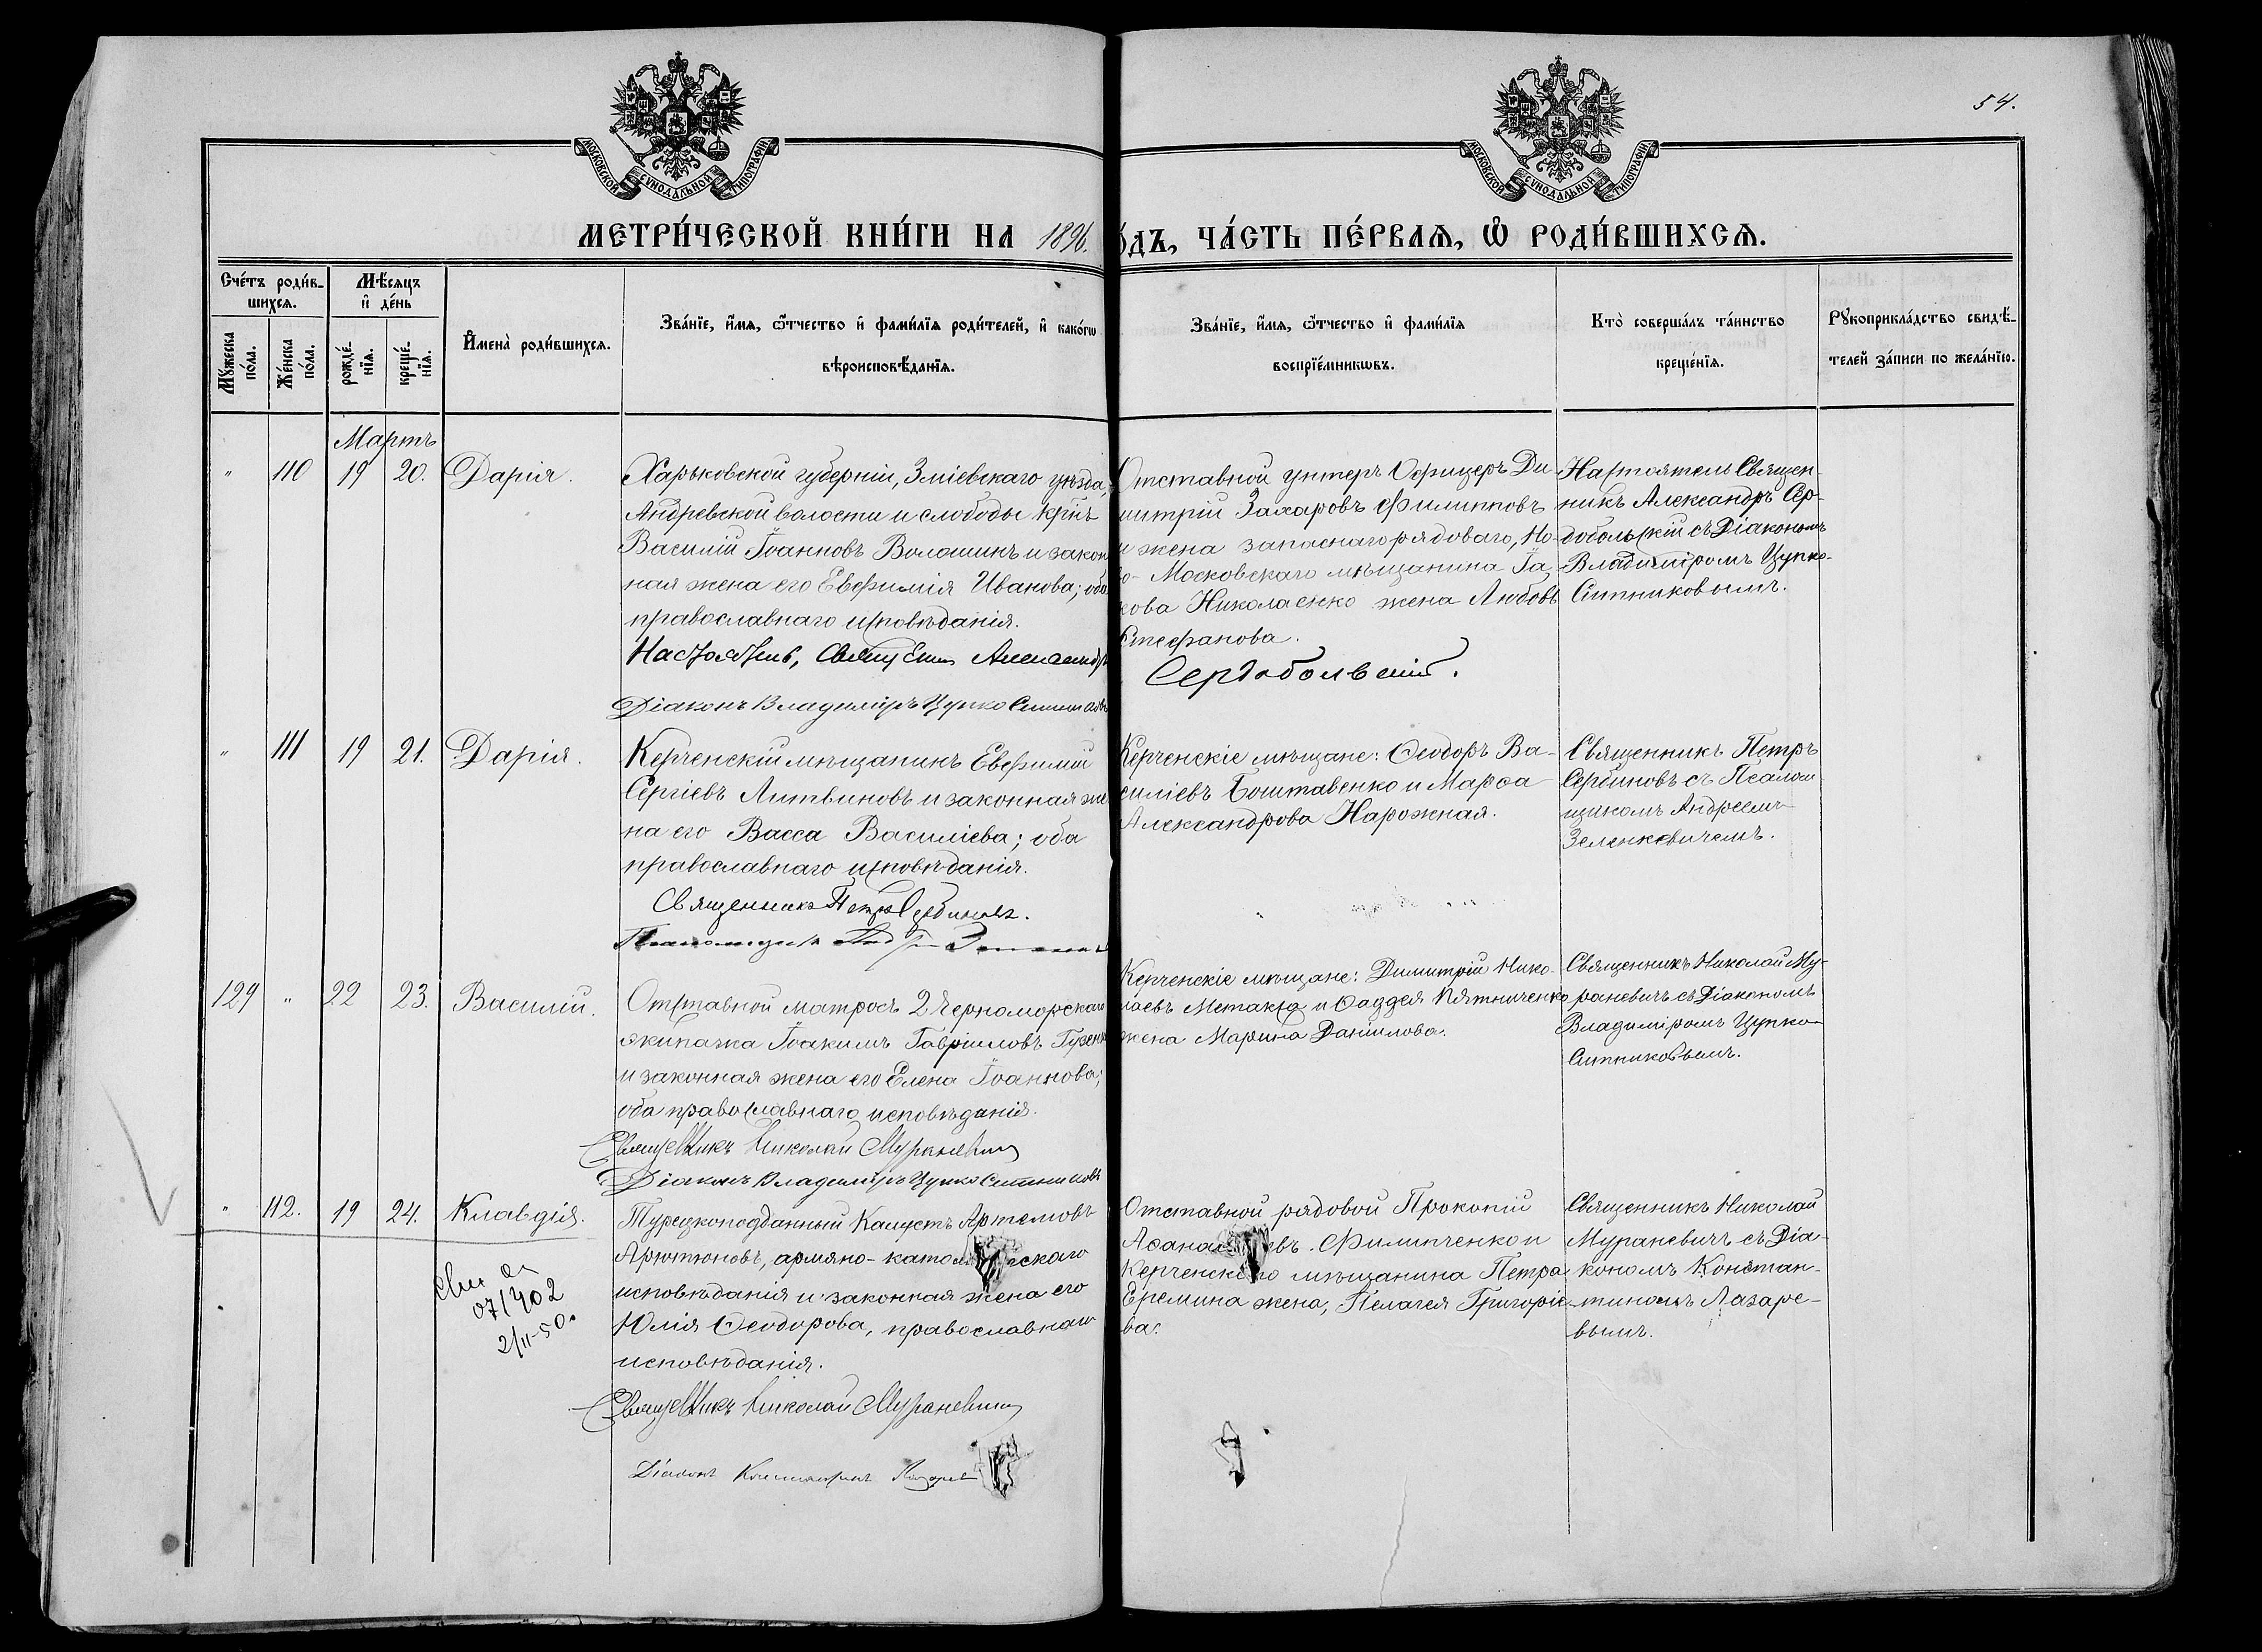 54.
МОСКОВСКОЙ СѴНОДАЛЬНОЙ ТИПОГРАФІИ
МОСКОВСКОЙ СѴНОДАЛЬНОЙ ТИПОГРАФІИ
МЕТРИ́ЧЕСКОЙ КНИ́ГИ НА 1896. ́ОДЪ, ЧА́СТЬ ПЕ́РВАѦ, Ѡ҆ РОДИ́ВШИХСѦ.
Сче́тъ роди́в-
шихсѧ.
Мꙋ́жеска
по́ла.
Же́нска
по́ла.
Мѣ́сяцъ
и҆ де́нь
рожде́-
нїѧ.
креще́-
нїѧ.
И҆мена̀ роди́вшихсѧ.
Зва́нїе, и҆́мѧ, ѻ҆́тчество и҆ фами́лїѧ роди́телей, и҆ како́гѡ
вѣроисповѣ́данїѧ.
Зва́нїе, и҆́мѧ, ѻ҆́тчество и҆ фами́лїѧ
воспрїе́мникѡвъ.
Кто̀ соверша́лъ та́инство
креще́нїѧ.
Рꙋкоприкла́дство свидѣ́-
телей за́писи по жела́нїю.
Мартъ
" 110 19 20. Дарія.
Харьковской губерніи, Зміевскаго уѣзда,
Андревской волости и слободы крнъ
Василій Іоанновъ Волошинъ и закон
ная жена его Евфимія Иванова; оба
православнаго исповѣданія.
Настоятель, Священ Александръ
Діаконъ Владиміръ Цупко Ситниковъ
Отставной унтеръ Офицеръ Ди
митрій Захаровъ Филипповъ
и жена запаснаго рядоваго, Но-
во-Московскаго мѣщанина Іа
кова Николаенко жена Любовь
Стефанова.
Сердобольскій.
Настоятель Священ-
никъ Александръ Сер-
добольскій съ Діакономъ
Владиміромъ Цупко-
Ситниковымъ.
" 111 19 21. Дарія.
Керченскій мѣщанинъ Евфимій
Сергіевъ Литвиновъ и законная же
на его Васса Василіева; оба
православнаго исповѣданія.
Священникъ Петръ Сербиновъ.
Керченскіе мѣщане: Ѳеодоръ Ва-
силіевъ Боштавенко и Марѳа
Александрова Нарожная.
Священникъ Петръ
Сербиновъ съ Псалом
щикомъ Андреемъ
Зеленкевичемъ.
129 " 22 23. Василій.
Отставной матросъ 2 Черноморскаго
экипажа Іоакимъ Гавріиловъ Гузенк
и законная жена его Елена Іоаннова;
оба православнаго исповѣданія.
Священникъ Николай Мураневич
Діаконъ Владиміръ Цупко Ситниковъ
Керченскіе мѣщане: Димитрій Нико-
лаевъ Метакса и Ѳаддея Пятниченко
жена Марина Даніилова.
Священникъ Николай Му-
раневичъ съ Діакономъ
Владиміромъ Цупко-
Ситниковымъ.
" 112. 19 24. Клавдія.
07/402
2/II-50.
Турецкоподданный Калустъ Артемовъ
Арютюновъ, армяно-католическаго
исповѣданія и законная жена его
Юлія Ѳеодорова, православнаго
исповѣданія.
Священникъ Николай Мураневич
Діаконъ Константинъ Лазарев
Отставной рядовой Прокопій
Аѳанасьевъ Филипченко и
Керченскаго мѣщанина Петра
Еремина жена, Пелагея Григоріе-
ва.
Священникъ Николай
Мураневичъ съ Діа-
кономъ Констан-
тиномъ Лазаре-
вымъ.